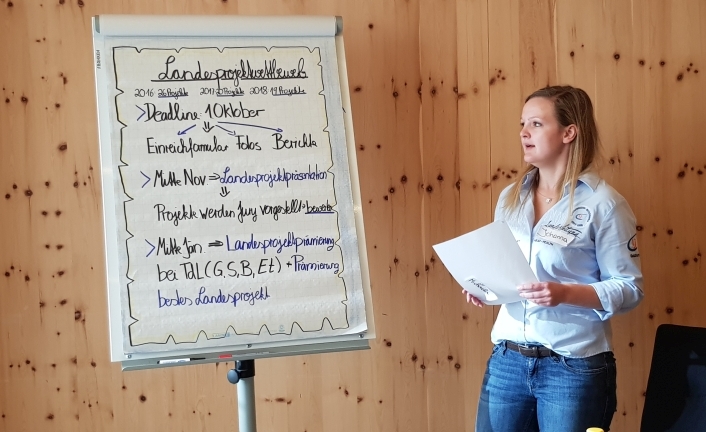 Landesprojektwettbewerb
2016 26 Projekte 2017 21 Projekte 2018 19 Projekte
> Deadline: 1 Oktober
Einreichformular Fotos Berichte
> Mitte Nov. ⇒ Landesprojektpräsentation
Projekte werden Jury vorgestellt + bewertet
> Mitte Jän. ⇒ Landesprojektprämierung
bei TdL (G, S, B, Et) + Prämierung
bestes Landesprojekt
Landjugend
Johanna